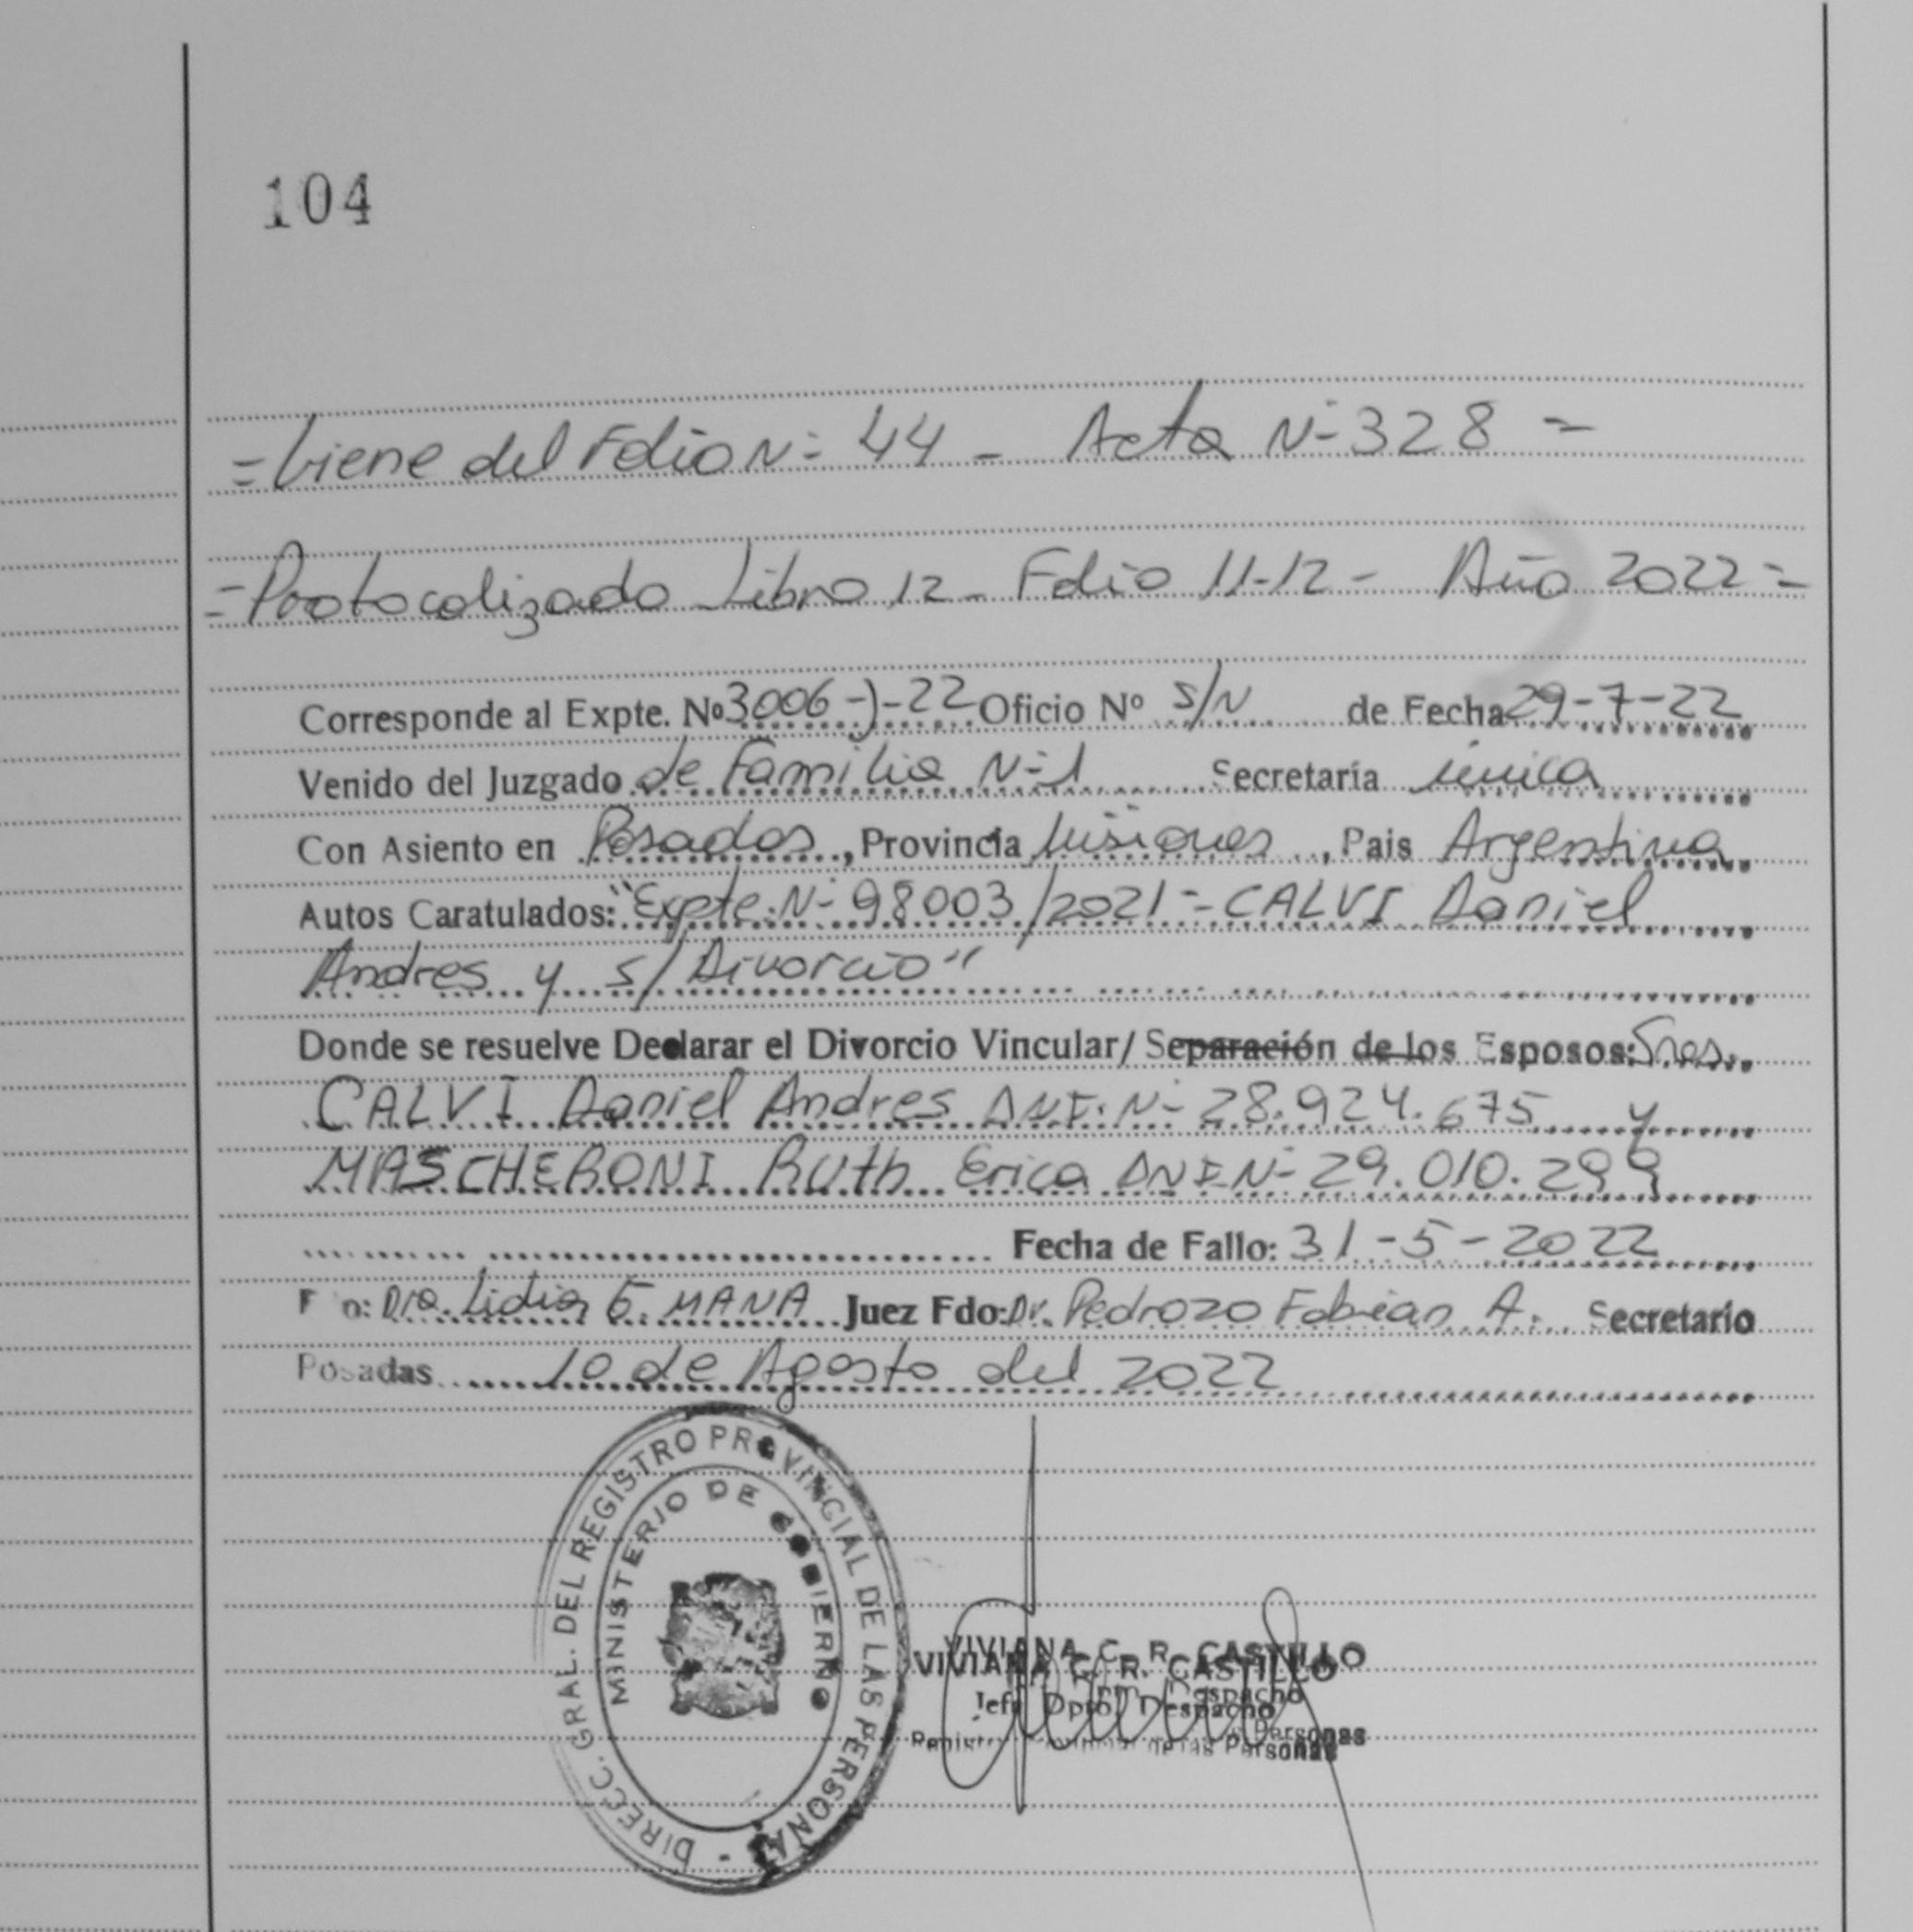 104
= Viene del Folio Nº 44 - Acta Nº 328 =
= Protocolizado Libro 12 - Folio 11-12 - Año 2022 =
Corresponde al Expte. Nº 3006-J-22 Oficio Nº S/N de Fecha 29-7-22
Venido del Juzgado de Familia Nº 1 Secretaría única
Con Asiento en Posadas, Provincia Misiones, Pais Argentina
Autos Caratulados: "Expte. Nº 98003/2021 - CALVI Daniel
Andres y s/ Divorcio"
Donde se resuelve Declarar el Divorcio Vincular/ Separación de los Esposos: Sres.
CALVI Daniel Andres DNI. Nº 28.924.675 y
MASCHERONI Ruth Erica DNI Nº 29.010.299
Fecha de Fallo: 31-5-2022
Fdo: Dra. Lidia E. MANA Juez Fdo: Dr. Pedrozo Fabian A. Secretario
Posadas 10 de Agosto del 2022
DIRECC. GRAL. DEL REGISTRO PROVINCIAL DE LAS PERSONAS -
MINISTERIO DE GOBIERNO
VIVIANA C. R. CASTILLO
VIVIANA C. R. CASTILLO
Jefe Dpto. Despacho
de las Personas